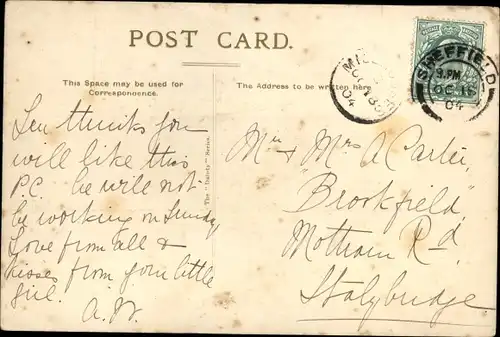 POST CARD.
This Space may be used for
Correspondence.
The Address to be written here
SHEFFIELD
9. PM
OC 16
04
04
The " " Series.
Len thinks you
will like this
P.C. he will not
be working on Sunday
Love from all &
kisses from your little
girl.
A. W.
Mr & Mrs A Carter
"Brookfield,"
Mottram Rd
Stalybridge.